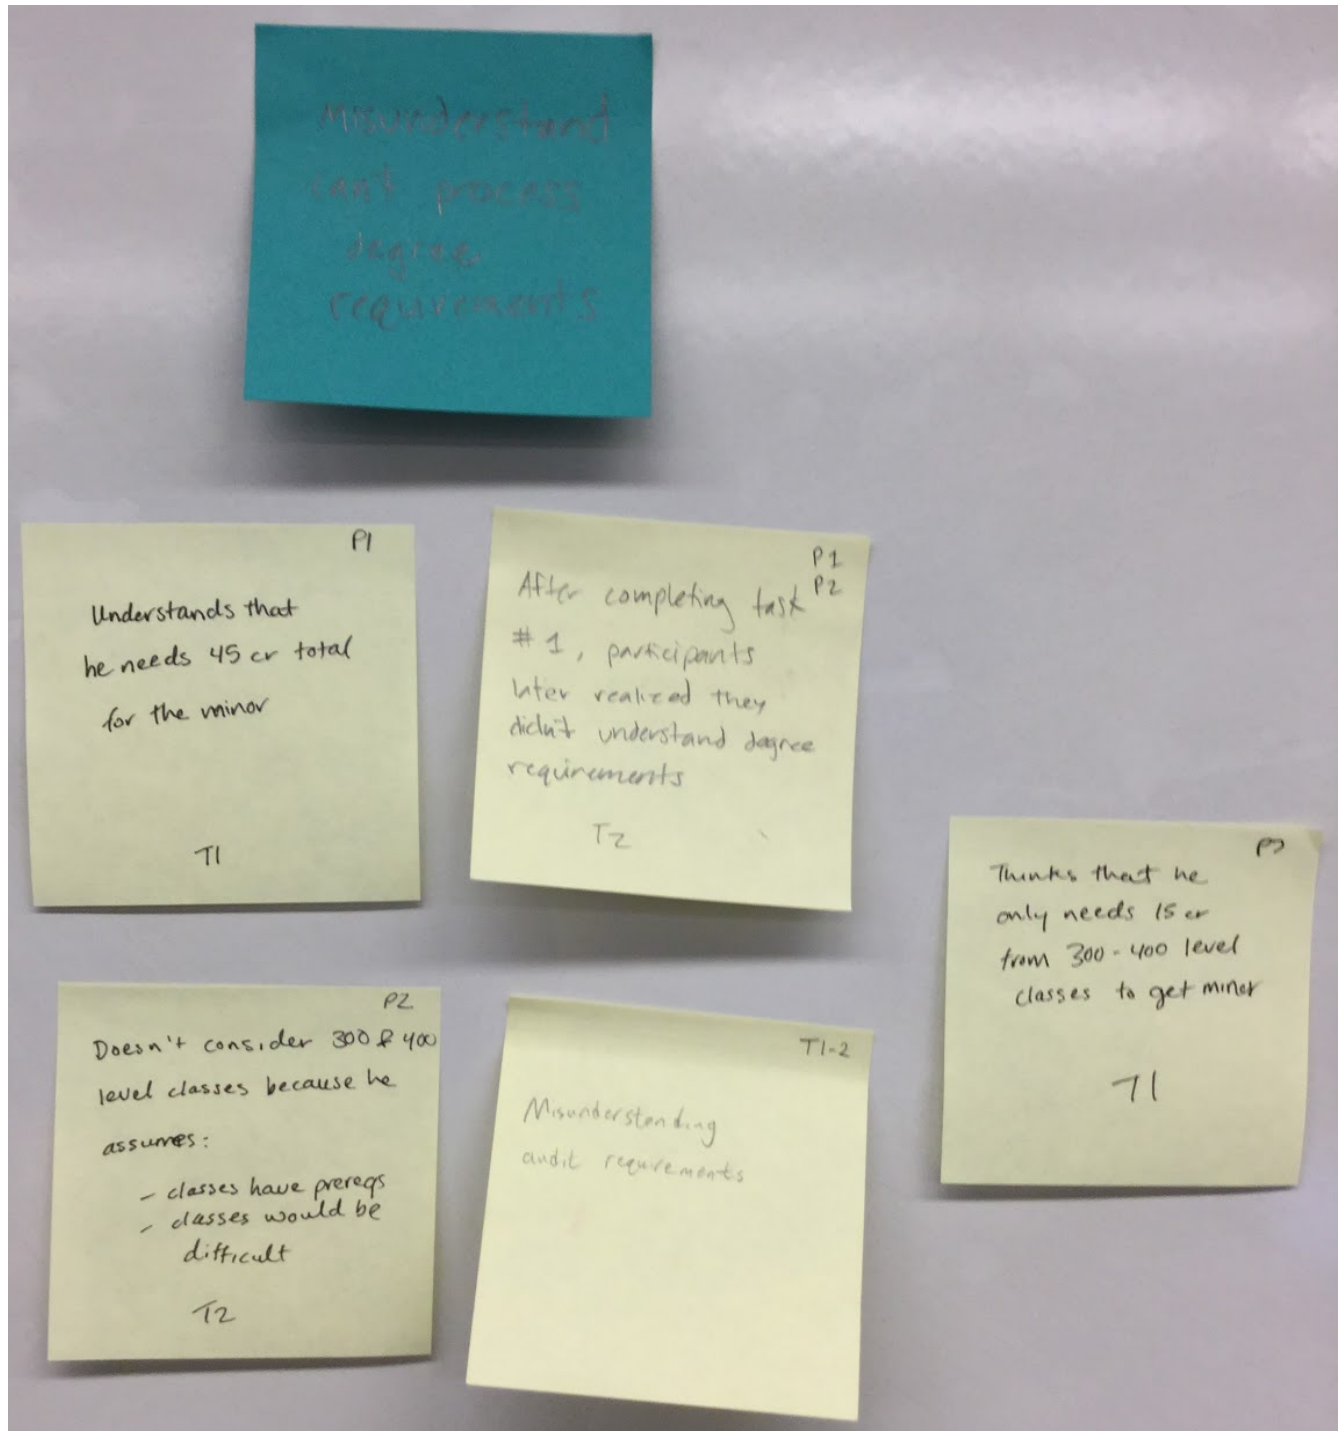 Misunderstand
can't process
degree
requirements
P1
Understands that
he needs 45 cr total
for the minor
T1
P1
P2
After completing task
#1, participants
later realized they
didn't understand degree
requirements
T2
P2
Doesn't consider 300 & 400
level classes because he
assumes:
- classes have prereqs
- classes would be
difficult
T2
T1-2
Misunderstanding
audit requirements
Thinks that he
only needs 15 cr
from 300-400 level
classes to get minor
T1